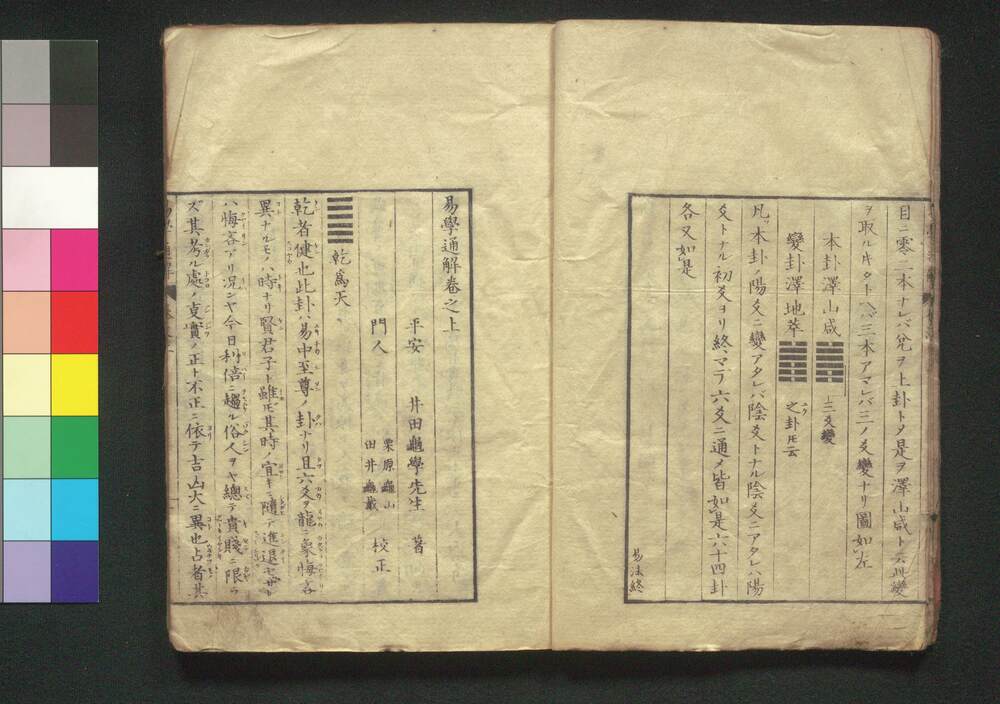 目ニ零二本ナレバ兌ヲ上卦トメ是ヲ澤山咸ト云此變
ヲ取ル片タトヘバ三本アマレバ三ノ爻變ナリ圖如左
本卦澤山咸 三爻變
變卦澤地萃 之卦トモ云
凡ソ本卦ノ陽爻ニ變アタレバ陰爻トナル陰爻ニアタレバ陽
爻トナル初爻ヨリ終マデ六爻ニ通メ皆如是六十四卦
各又如是
易法終
易學通解卷之上
平安 井田龜學先生 著
門人 栗原龜山
田井龜藏 校正
乾爲天
乾者健也此卦ハ易中至尊ノ卦ナリ且六爻ヲ龍ニ象悔吝
異ナルモノハ時ナリ賢君子ト雖モ其時ノ宜キニ隨テ進退セザレ
ハ悔吝アリ況ンヤ今日利倍ニ趨ル俗人ヲヤ總テ貴賤ニ限ラ
ズ其考ル處ノ事實ノ正ト不正ニ依テ吉凶大ニ異也占者其